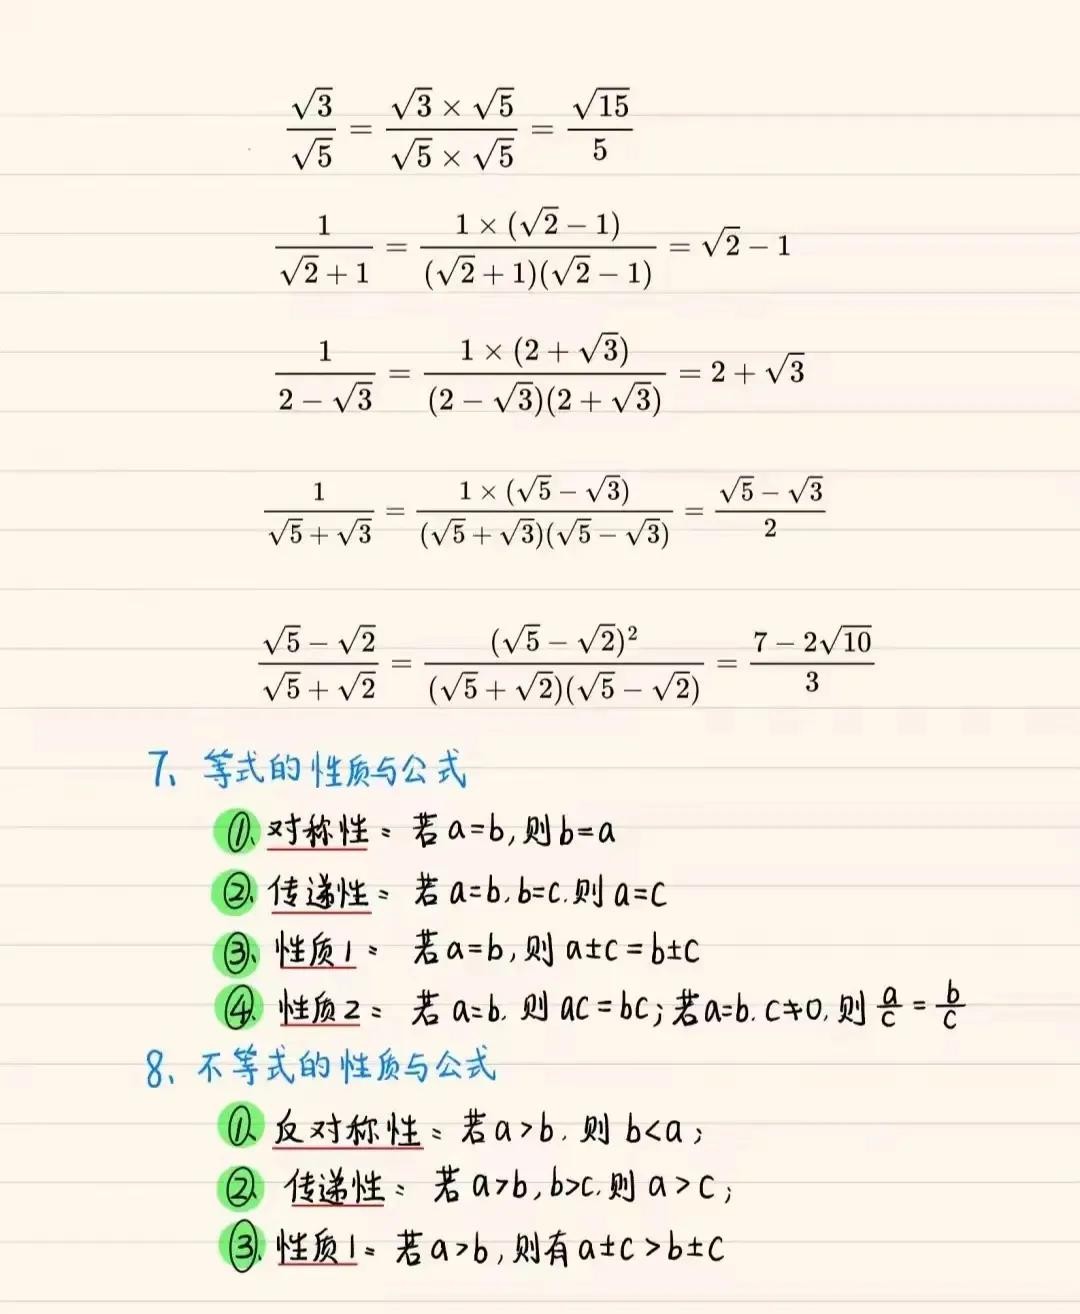 √3/√5 = (√3 × √5)/(√5 × √5) = √15/5
1/(√2 + 1) = (1 × (√2 − 1))/((√2 + 1)(√2 − 1)) = √2 − 1
1/(2 − √3) = (1 × (2 + √3))/((2 − √3)(2 + √3)) = 2 + √3
1/(√5 + √3) = (1 × (√5 − √3))/((√5 + √3)(√5 − √3)) = (√5 − √3)/2
(√5 − √2)/(√5 + √2) = (√5 − √2)²/((√5 + √2)(√5 − √2)) = (7 − 2√10)/3
7、等式的性质与公式
①、对称性：若a=b,则b=a
②、传递性：若a=b,b=c.则a=c
③、性质1：若a=b,则a±c=b±c
④、性质2：若a=b.则ac=bc;若a=b.c≠0,则a/c=b/c
8、不等式的性质与公式
①、反对称性：若a>b.则b<a;
②、传递性：若a>b,b>c.则a>c;
③、性质1：若a>b,则有a±c>b±c